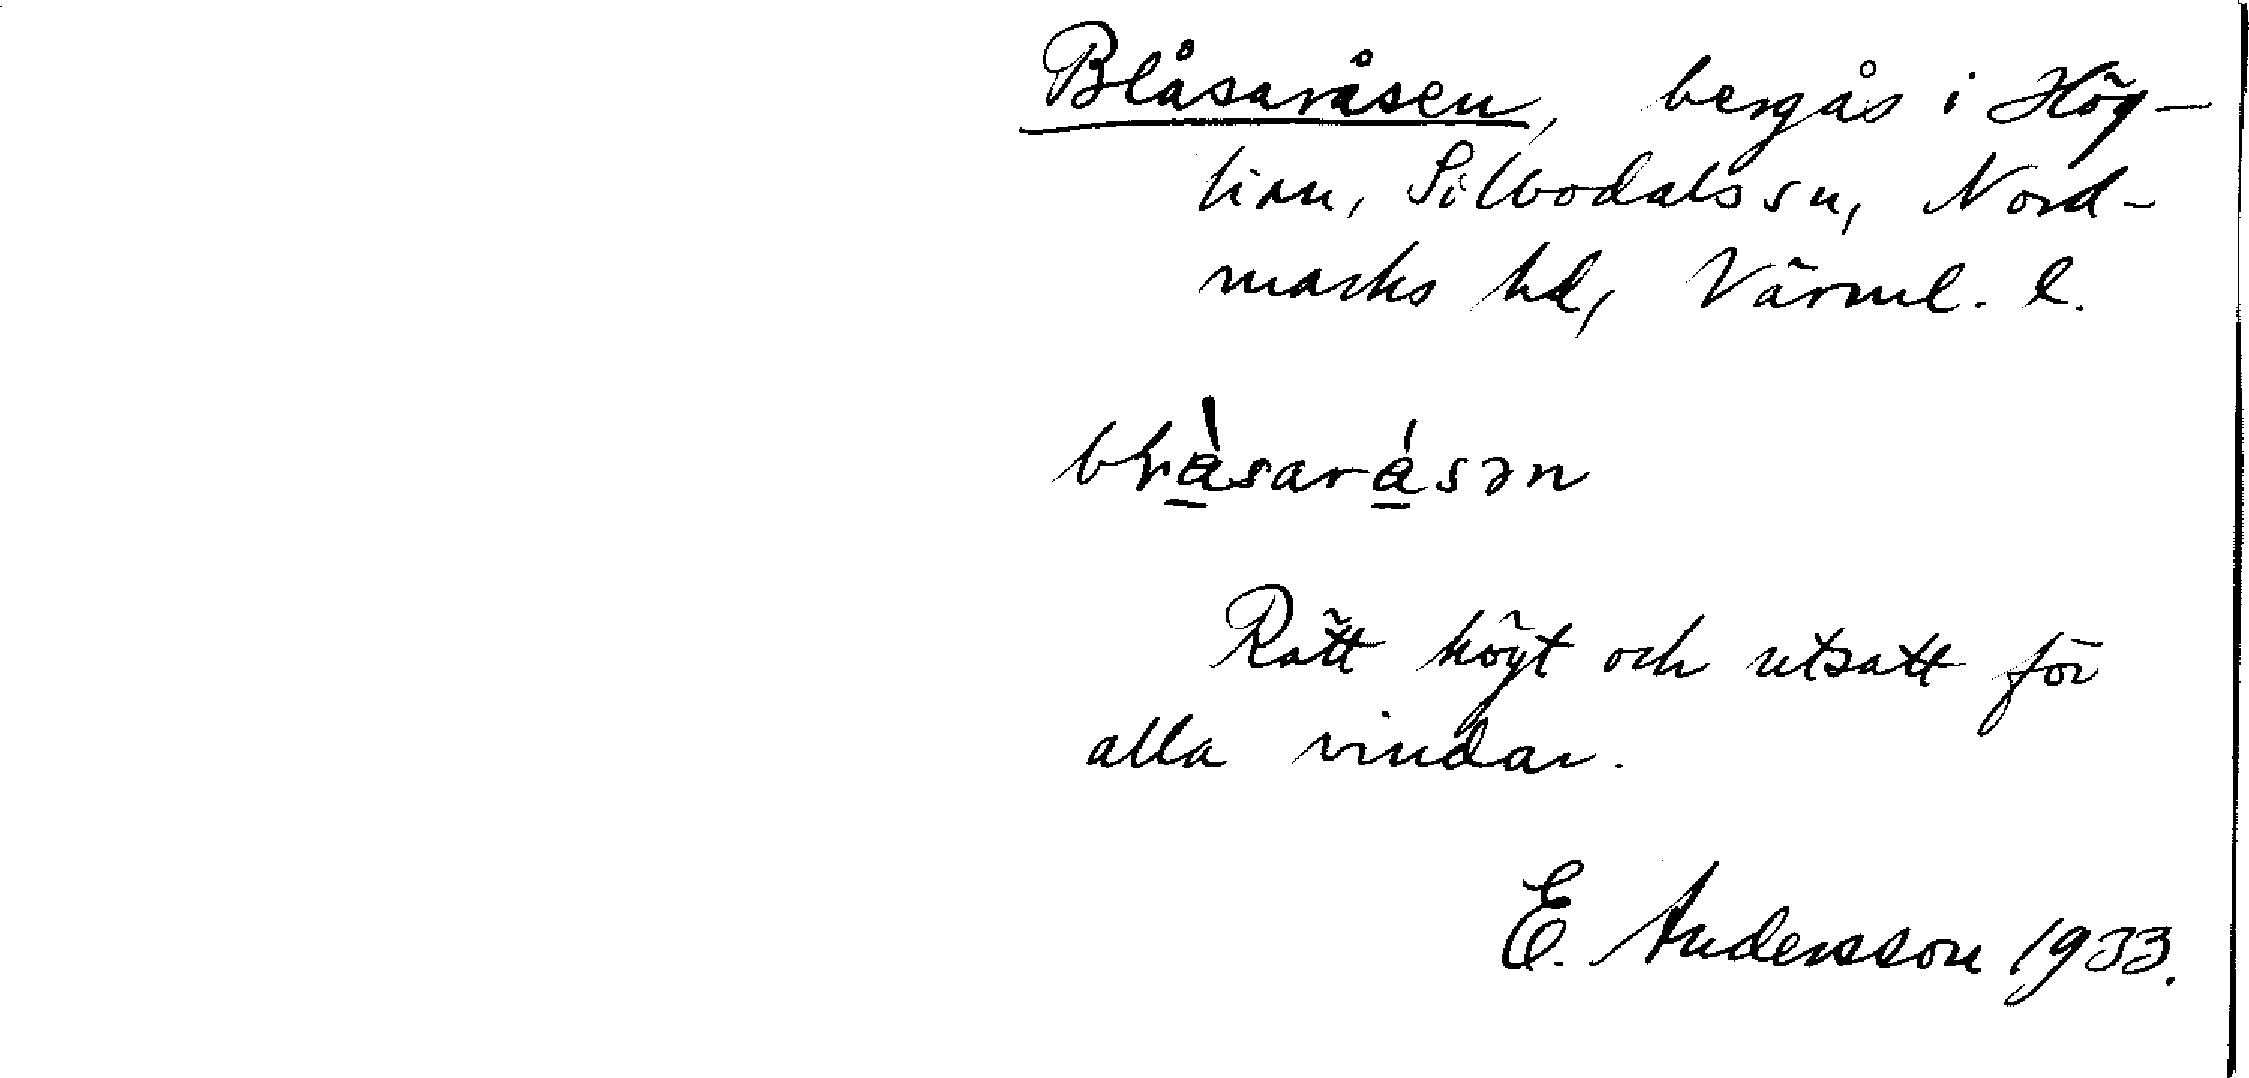 Blåsaråsen, bergås i Hög-
lian, Silbodals sn, Nord-
marks hd, Värml. l.
Rätt högt och utsatt för
alla vindar.
E. Andersson 1933.